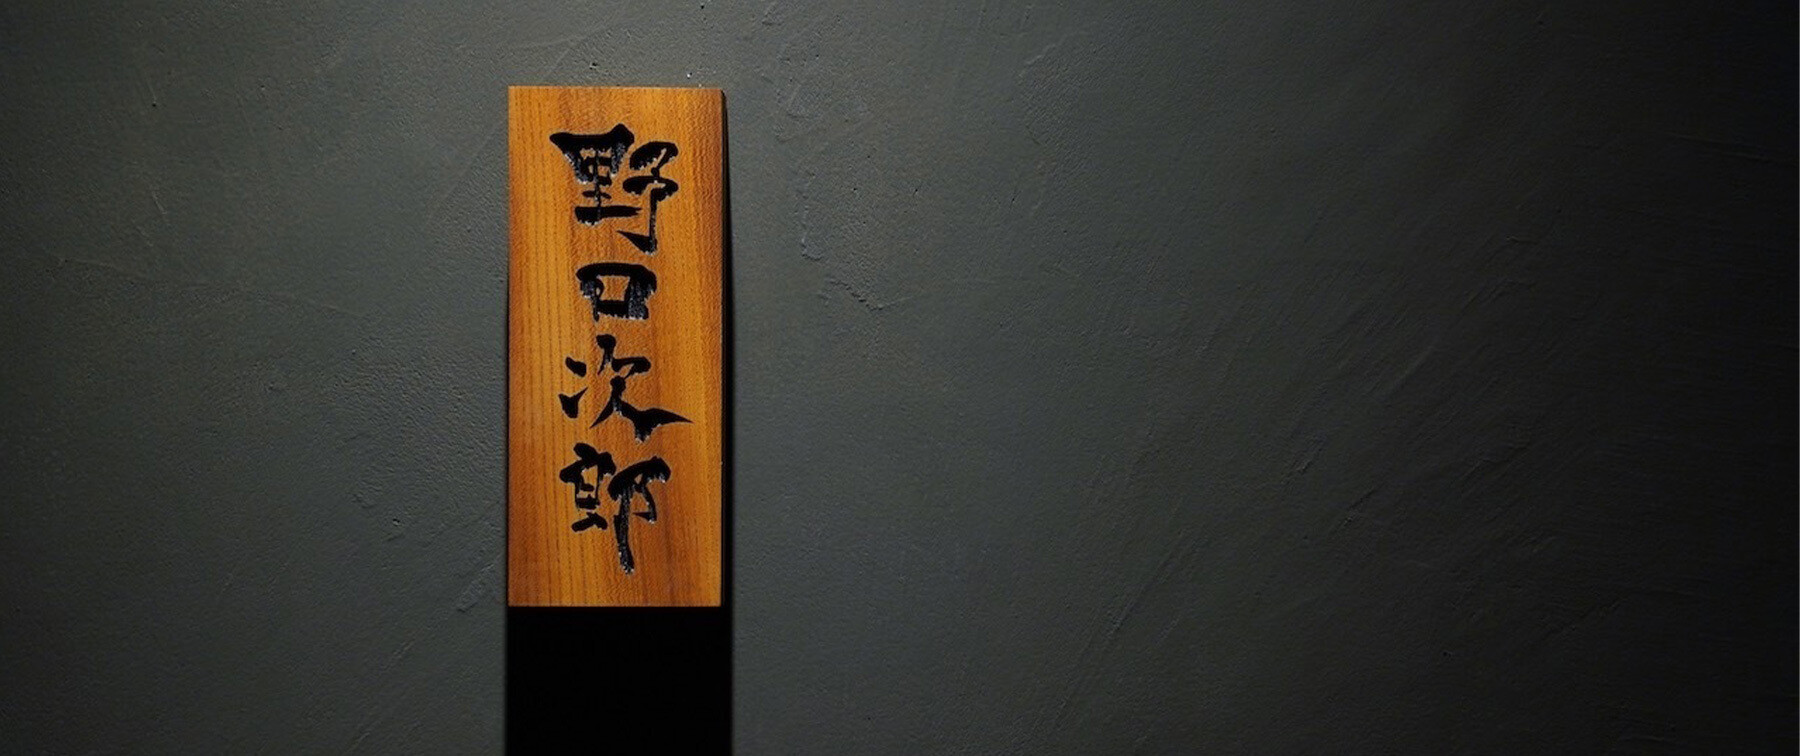 野口次郎